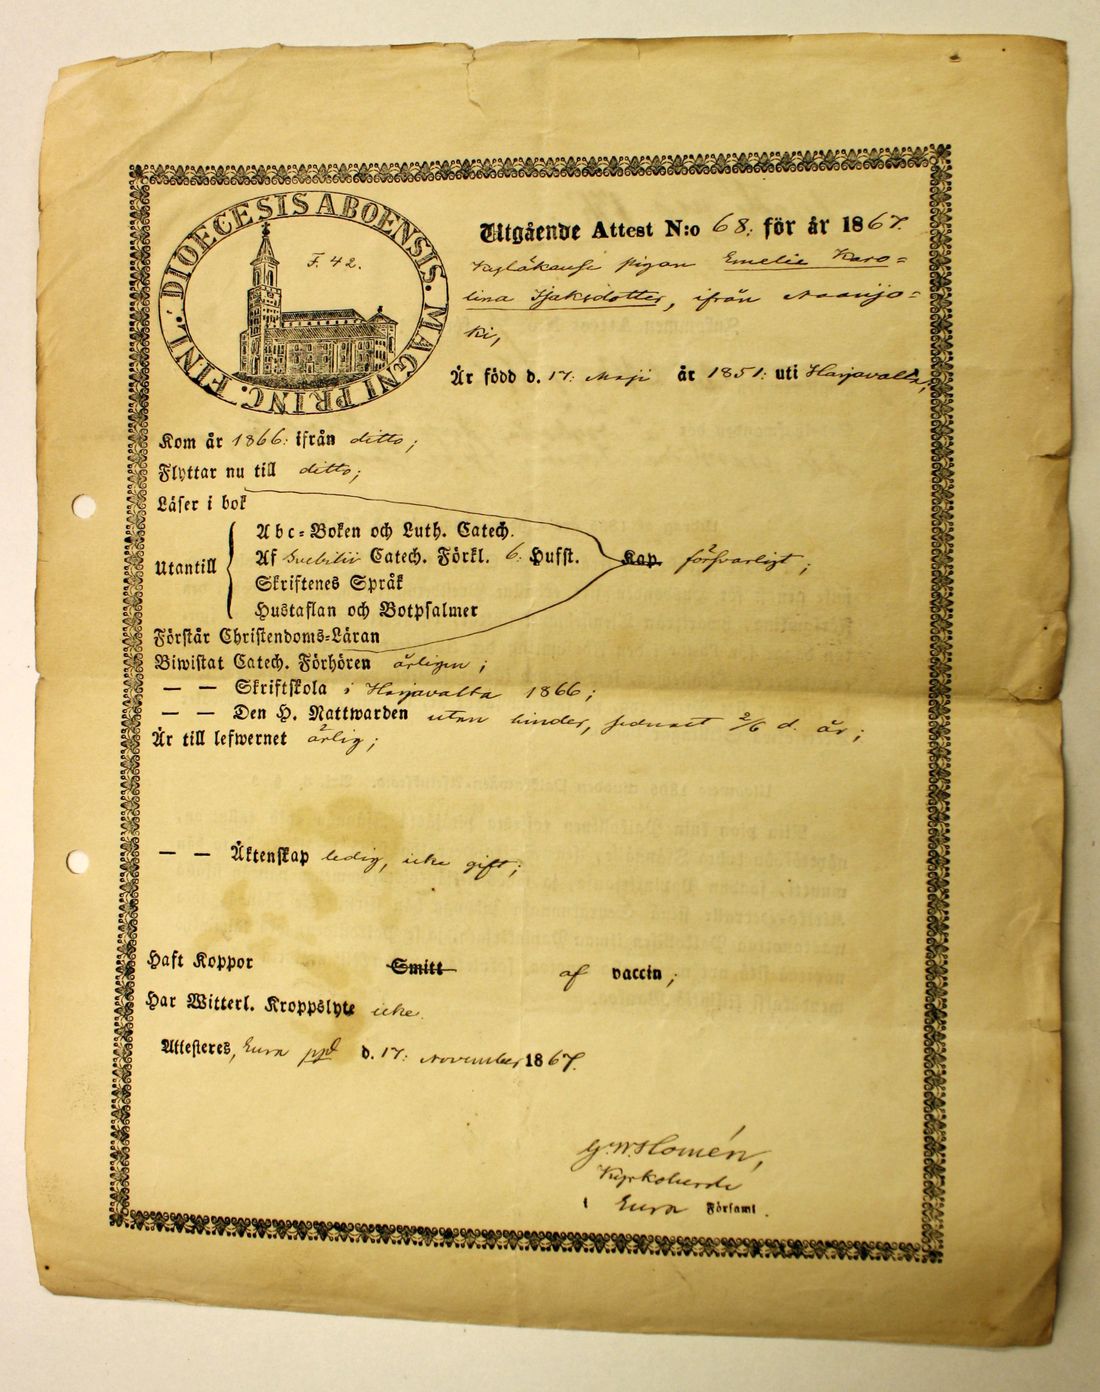 DIOECESIS ABOENSIS. MAGNI PRINC. FINL.
F. 42.
Utgående Attest N:o 68: för år 1867.
pigan Emelie Karo=
lina Isaksdotter, ifrån Naarijo=
ki,
Är född d. 17: Maji år 1851: uti Harjavalta,
Kom år 1866: ifrån ditto;
Flyttar nu till ditto;
Läser i bok
Utantill
Abc-Boken och Luth. Catech.
Af Svebilii Catech. Förkl. 6. Hufst. Kap. försvarligt;
Skriftenes Språk
Hustaflan och Botpsalmer
Förstår Christendoms-Läran
Biwistat Catech. Förhören årligen;
— — Skriftskola i Harjavalta 1866;
— — Den H. Nattwarden utan hinder, senast 2/6 d. år;
Är till lefwernet ärlig;
— — Äktenskap ledig, icke gift;
Haft Koppor Smitt af vaccin;
Har Witterl. Kroppslyte icke.
Attesteres, Eura d. 17: November 1867.
G. W. Homén,
Kyrkoherde
i Eura Församl.